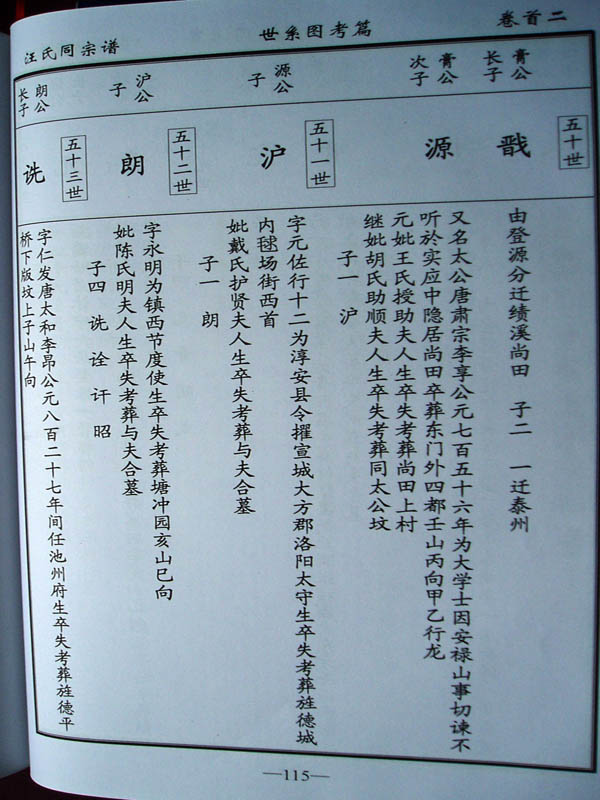 卷首二
世系图考篇
汪氏同宗谱
五十世
膏公
长子
戬
由登源分迁绩溪尚田 子二 一迁泰州
膏公
次子
源
又名太公唐肃宗李享公元七百五十六年为大学士因安禄山事切谏不
听於实应中隐居尚田卒葬东门外四都壬山丙向甲乙行龙
元妣王氏授助夫人生卒失考葬尚田上村
继妣胡氏助顺夫人生卒失考葬同太公坟
子一 沪
五十一世
源公
子
沪
字元佐行十二为淳安县令擢宣城大方郡洛阳太守生卒失考葬旌德城
内毬场街西首
妣戴氏护贤夫人生卒失考葬与夫合墓
子一 朗
五十二世
沪公
子
朗
字永明为镇西节度使生卒失考葬塘冲园亥山巳向
妣陈氏明夫人生卒失考葬与夫合墓
子四 诜 诠 讦 昭
五十三世
朗公
长子
诜
字仁发唐太和李昂公元八百二十七年间任池州府生卒失考葬旌德平
桥下版坟上子山午向
—115—